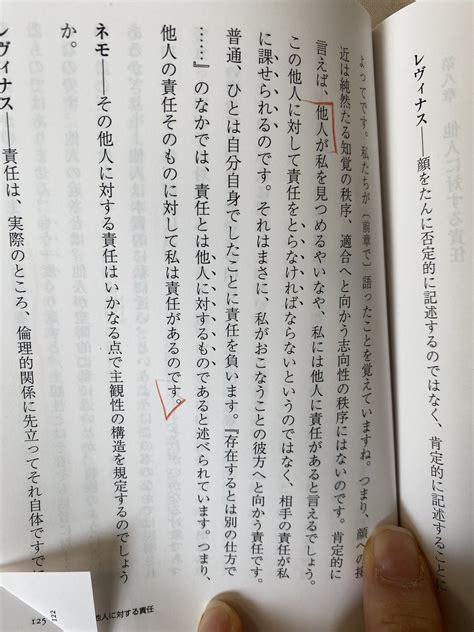 レヴィナス——顔をたんに否定的に記述するのではなく、肯定的に記述することに
よってです。私たちが〔前章で〕語ったことを覚えていますね。つまり、顔への接
近は純然たる知覚の秩序、適合へと向かう志向性の秩序にはないのです。肯定的に
言えば、他人が私を見つめるやいなや、私には他人に責任があると言えるでしょう。
この他人に対して責任をとらなければならないというのではなく、相手の責任が私
に課せられるのです。それはまさに、私がおこなうことの彼方へと向かう責任です。
普通、ひとは自分自身でしたことに責任を負います。『存在するとは別の仕方で
……』のなかでは、責任とは他人に対するものであると述べられています。つまり、
他人の責任そのものに対して私は責任があるのです。
ネモ——その他人に対する責任はいかなる点で主観性の構造を規定するのでしょう
か。
レヴィナス——責任は、実際のところ、倫理的関係に先立ってそれ自体ですでに
125
122
他人に対する責任